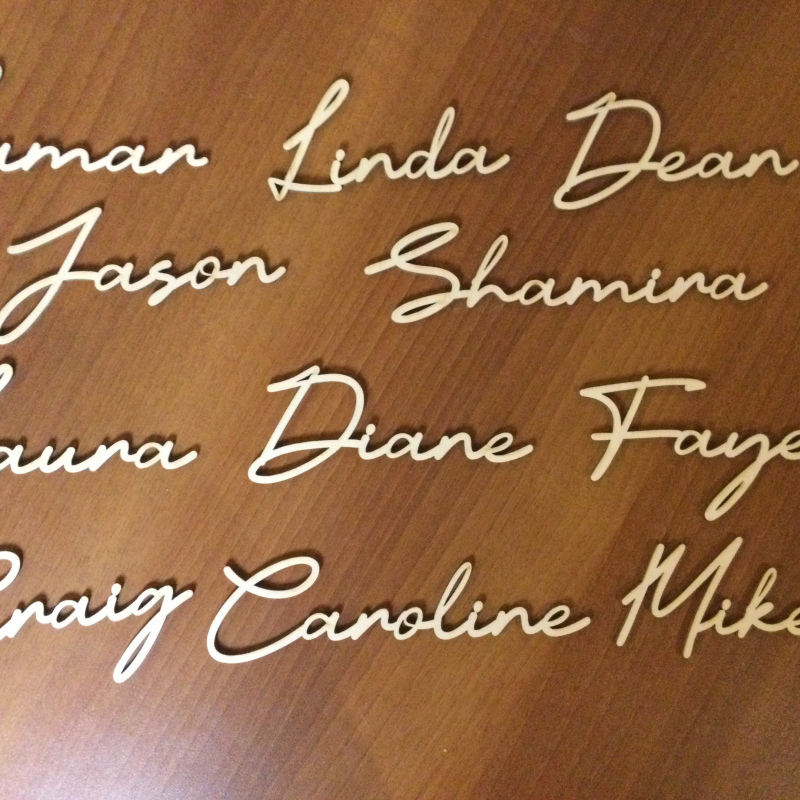 umar Linda Dean
Jason Shamira
aura Diane Faye
Craig Caroline Mike